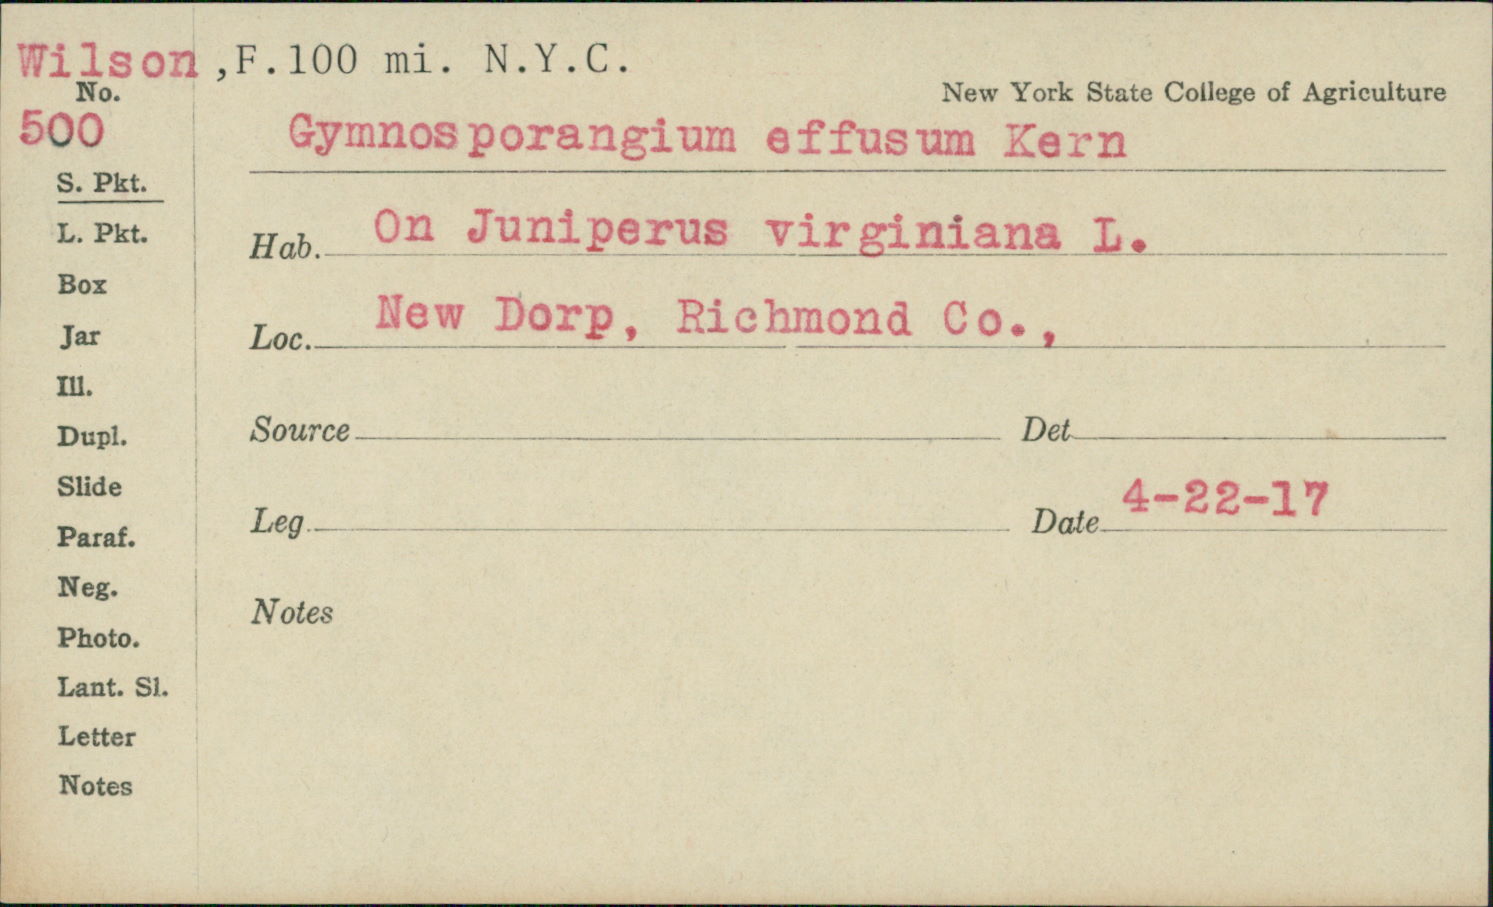 Wilson ,F.100 mi. N.Y.C.
No.
New York State College of Agriculture
500
Gymnosporangium effusum Kern
S. Pkt.
L. Pkt.
Hab. On Juniperus virginiana L.
Box
Jar
Loc. New Dorp, Richmond Co.,
Ill.
Dupl.
Source Det
Slide
Leg. Date 4-22-17
Paraf.
Neg.
Notes
Photo.
Lant. Sl.
Letter
Notes